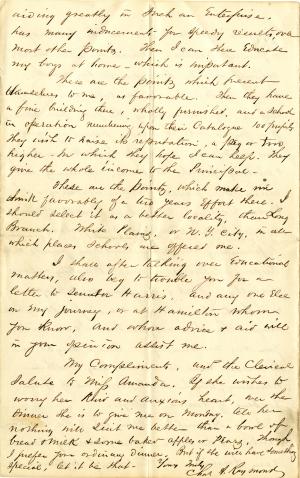 aiding greatly in such an Enterprise,
has many inducements for speedy results, over
most other points. Then I can there Educate
my boys at home - which is important.
These are the points, which present
themselves to me, as favorable. Then they have
a fine building there, wholly furnished, and a School
in operation numbering upon their Catalogue 100 pupils
They wish to raise its reputation, a peg or two
higher - in which they hope I can help. They
give the whole income to the Principal.
These are the Points, which make me
think favorably of a two years effort there. I
should select it as a better locality, than Long
Branch, White Plains, or N.Y. City, in all
which places Schools are offered me.
I shall after talking over Educational
matters, also beg to trouble you for a
letter to Senator Harris, and any one Else
on my journey, or at Hamilton whom
you know, and whose advice & aid will
in your opinion assist me.
My Compliments, and the Clerical
Salute to Miss Amanda. If she wishes to
worry her kind and anxious heart, over the
dinner she is to give me on Monday, tell her
nothing will suit me better than a bowl of
bread & milk & some baked apples or Pears, though
I prefer your ordinary dinner. But if she will have something
special, let it be that - Yours truly
Chas. A. Raymond